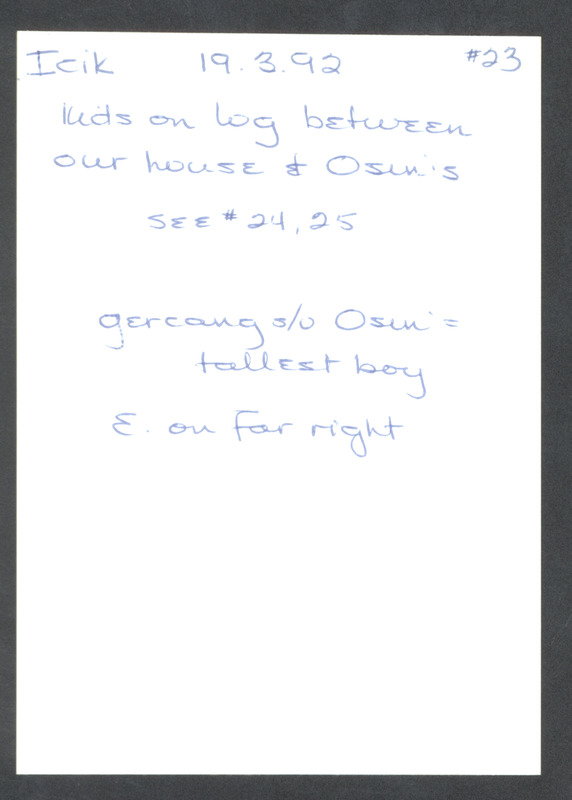 Icik 19.3.92 #23
kids on log between
our house & Osin's
see # 24, 25
gercang s/o Osin =
tallest boy
E. on far right